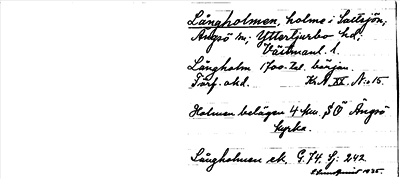 Långholmen, holme i Saltsjön,
Ängsö sn; Yttertjurbo hd;
Västmanl. l.
Långholm 1700-tal. början.
Förf. okd. KrA XX. N:o 15.
Holmen belägen 4 km. SO Ängsö
kyrka.
Långholmen ek. G. 74. Sj: 242
1935.